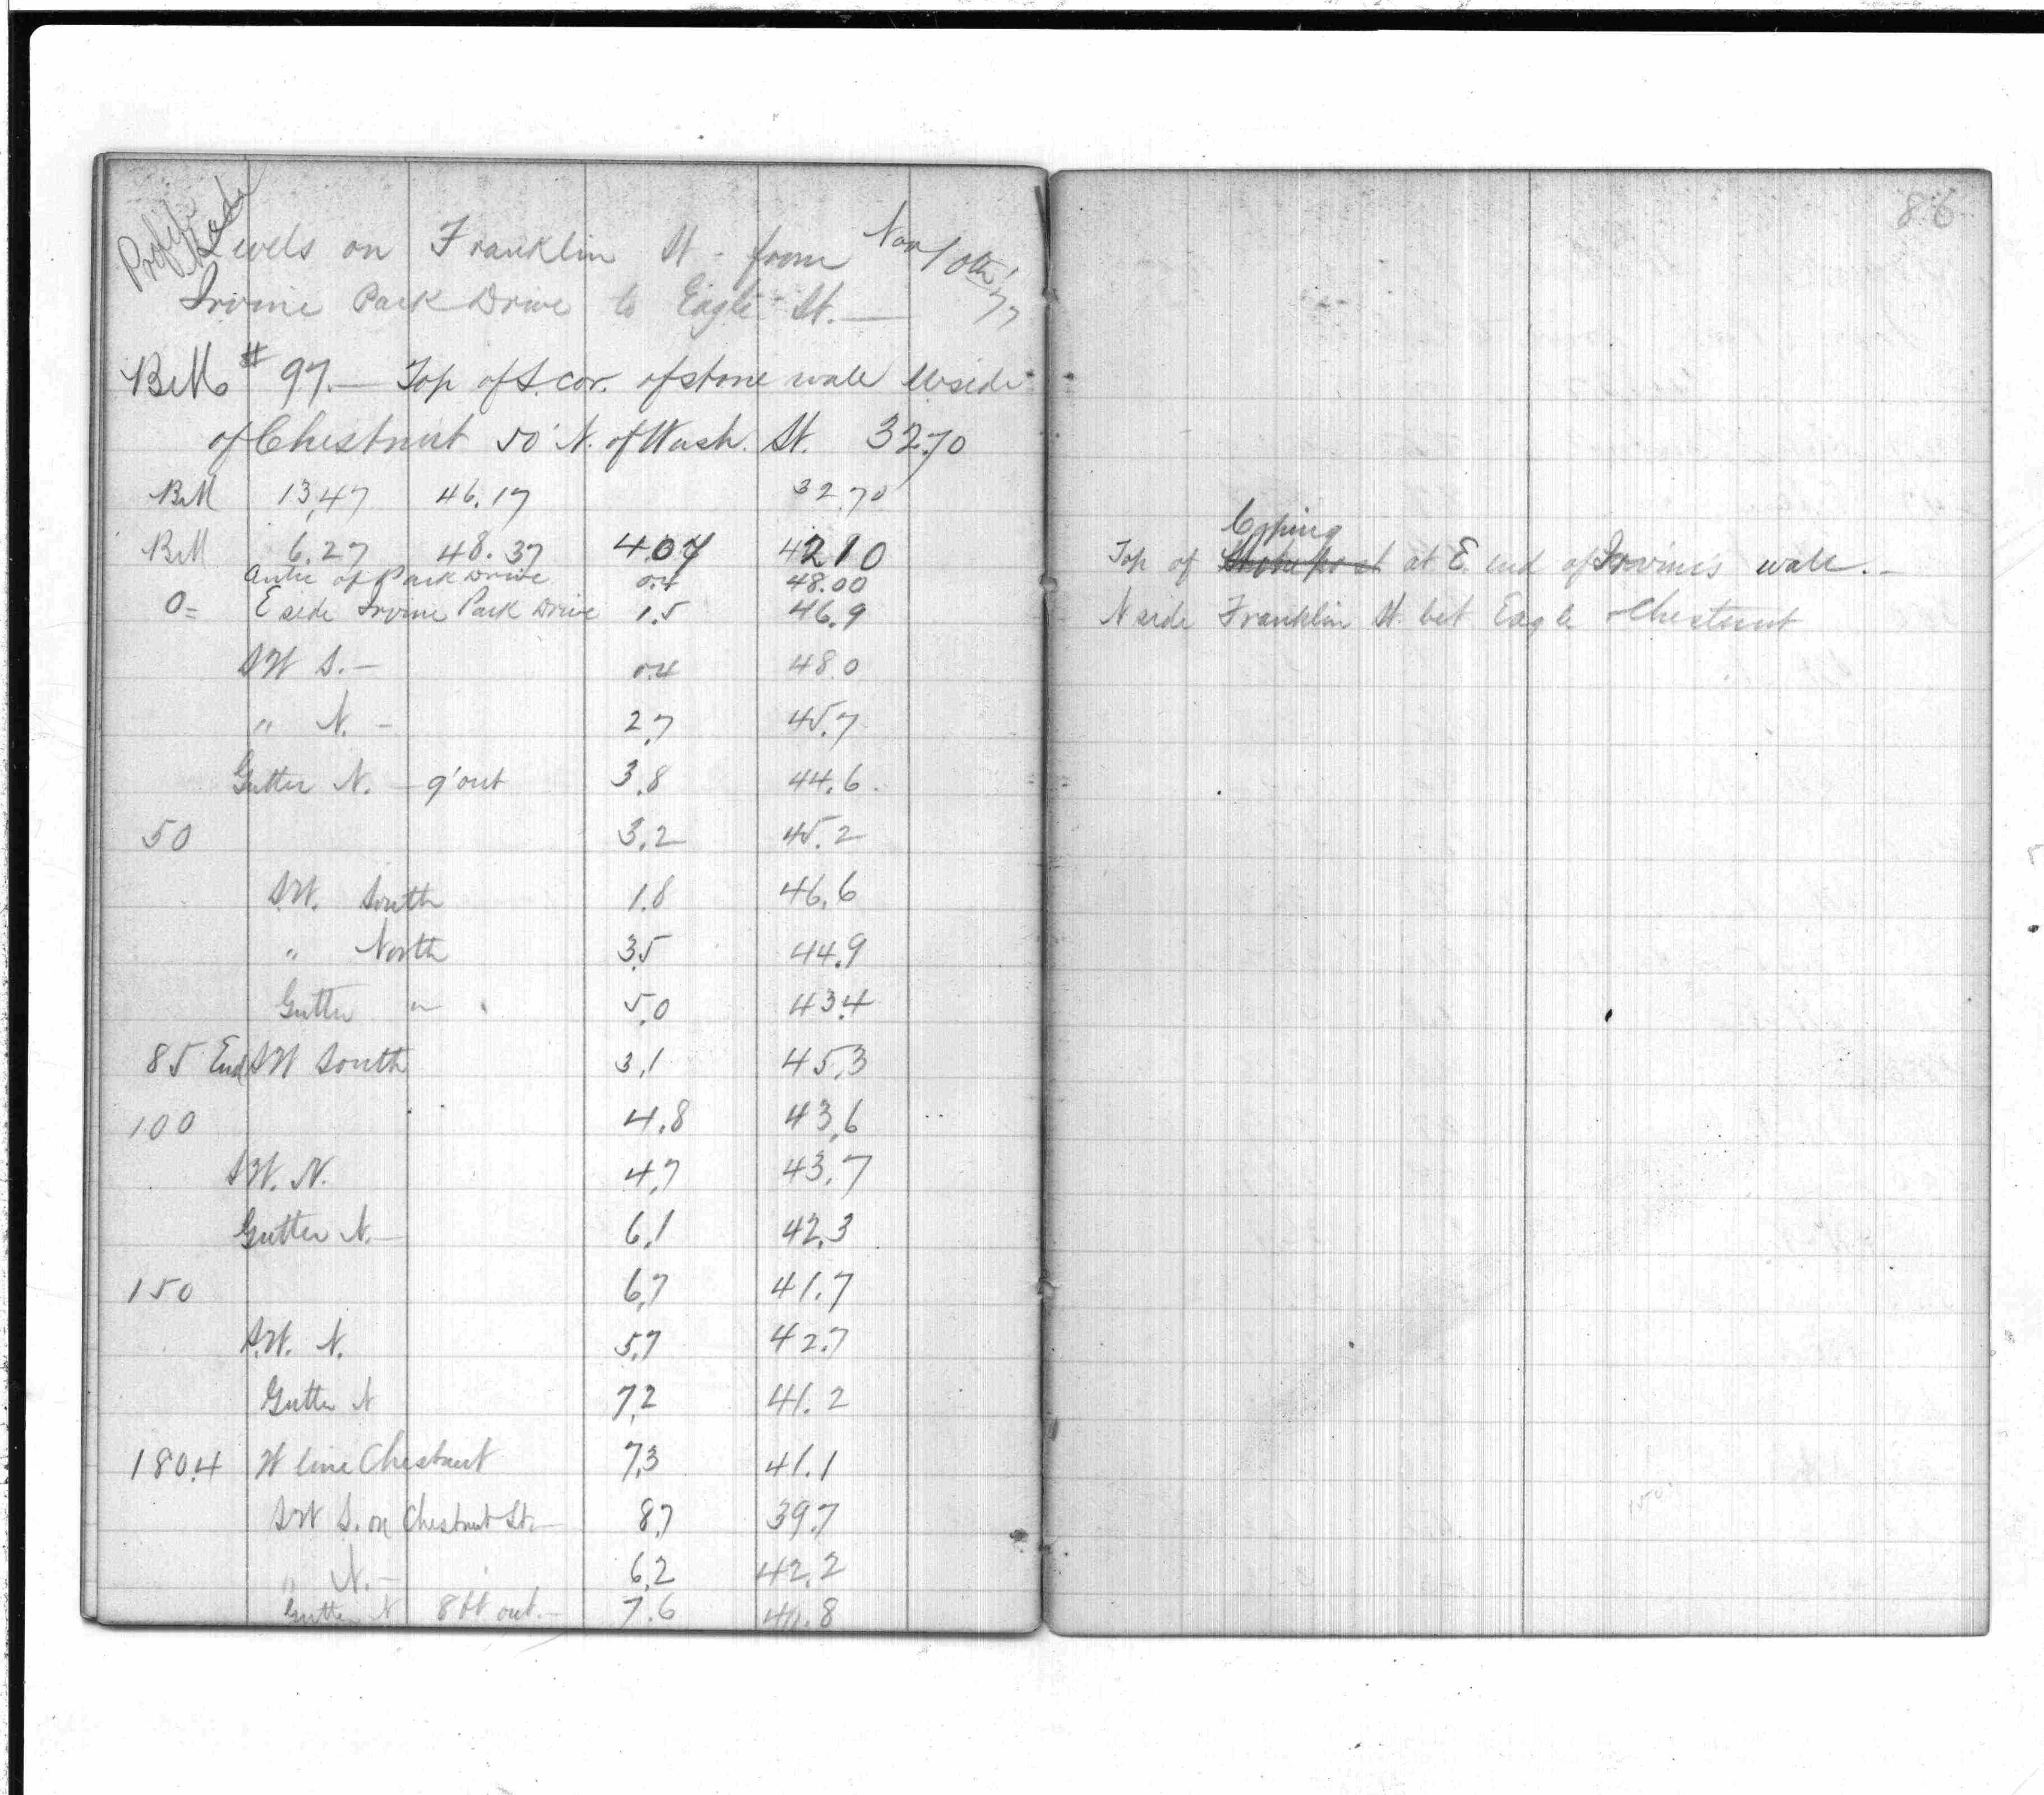 Profile Made
Levels on Franklin St - from Nov 10th '77
Irvine Park Drive to Eagle St. —
BM # 97. — Top of S. cor. of stone wall W side
of Chestnut 50' N. of Wash. St. 32.70
BM 13.47 46.17 32.70
BM 6.27 48.37 4.07 42.10
Centre of Park Drive 0.4 48.00
0 = E side Irvine Park Drive 1.5 46.9
SW S. — 0.4 48.0
" N. — 2.7 45.7
Gutter N. — 9' out 3.8 44.6
50 3.2 45.2
SW. South 1.8 46.6
" North 3.5 44.9
Gutter " 5.0 43.4
85 End SW South 3.1 45.3
100 4.8 43.6
SW. N. 4.7 43.7
Gutter N. — 6.1 42.3
150 6.7 41.7
S.W. N. 5.7 42.7
Gutter N 7.2 41.2
180.4 W line Chestnut 7.3 41.1
SW S. on Chestnut St. — 8.7 39.7
" N. — 6.2 42.2
Gutter N 8 ft out. — 7.6 40.8
86
Coping
Top of at E. end of Irvine's wall. —
N side Franklin St. bet Eagle & Chestnut